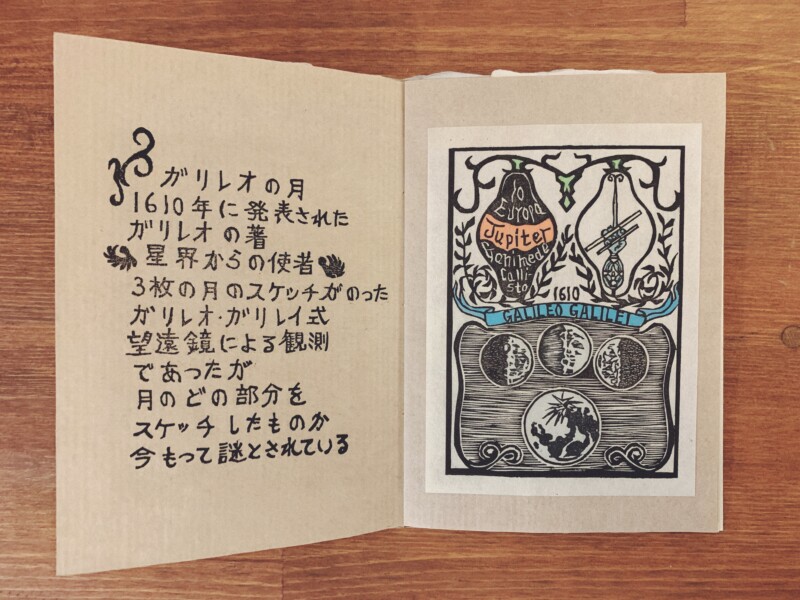 ガリレオの月
1610年に発表された
ガリレオの著
星界からの使者
3枚の月のスケッチがのった
ガリレオ・ガリレイ式
望遠鏡による観測
であったが
月のどの部分を
スケッチしたものか
今もって謎とされている
Io
Europa
Jupiter
Ganimede
Calli-
sto
1610
GALILEO GALILEI